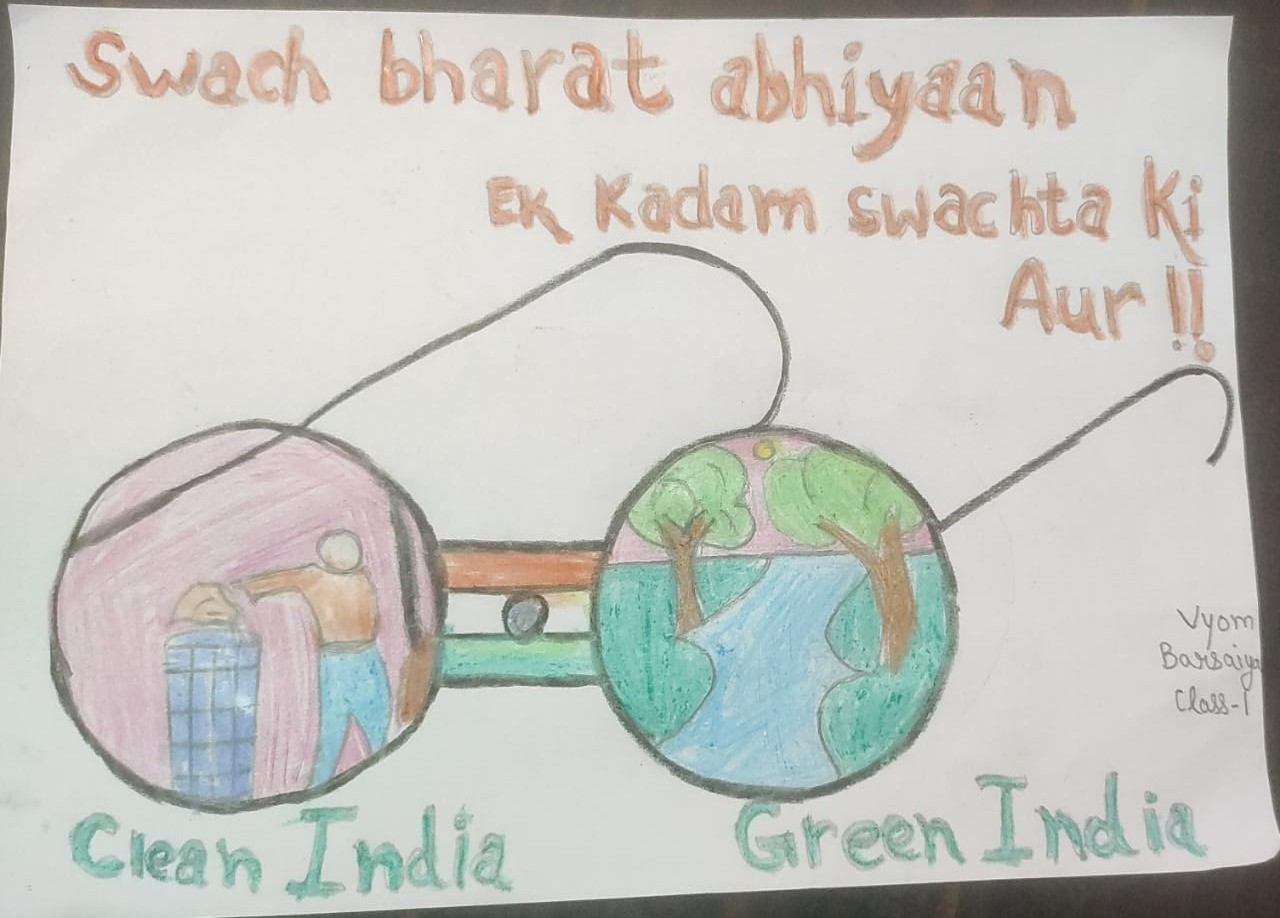 Swach bharat abhiyaan
Ek Kadam swachta Ki
Aur !!
Vyom
Barsaiya
Class-1
Clean India
Green India